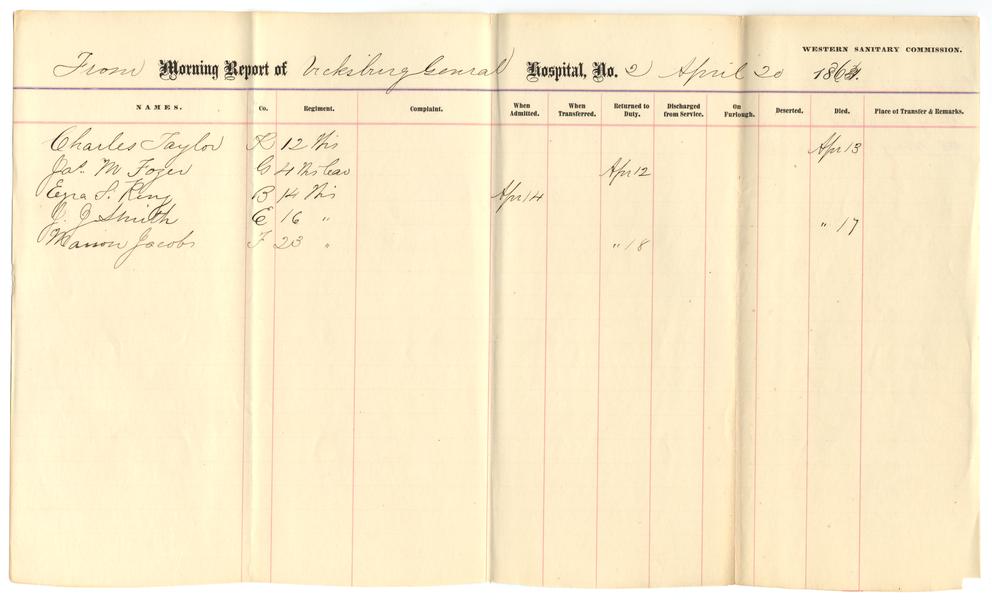 WESTERN SANITARY COMMISSION.
From Morning Report of Vicksburg General Hospital, No. 2 April 20 1864.
NAMES. Co. Regiment. Complaint. When Admitted. When Transferred. Returned to Duty. Discharged from Service. On Furlough. Deserted. Died. Place of Transfer & Remarks.
Charles Taylor K 12 Wis Apr 13
Jas. M Foger G 4 Wis Cav Apr 12
Ezra S. King B 14 Wis Apr 14
J. Smith E 16 " " 17
Marion Jacobs F 23 " " 18